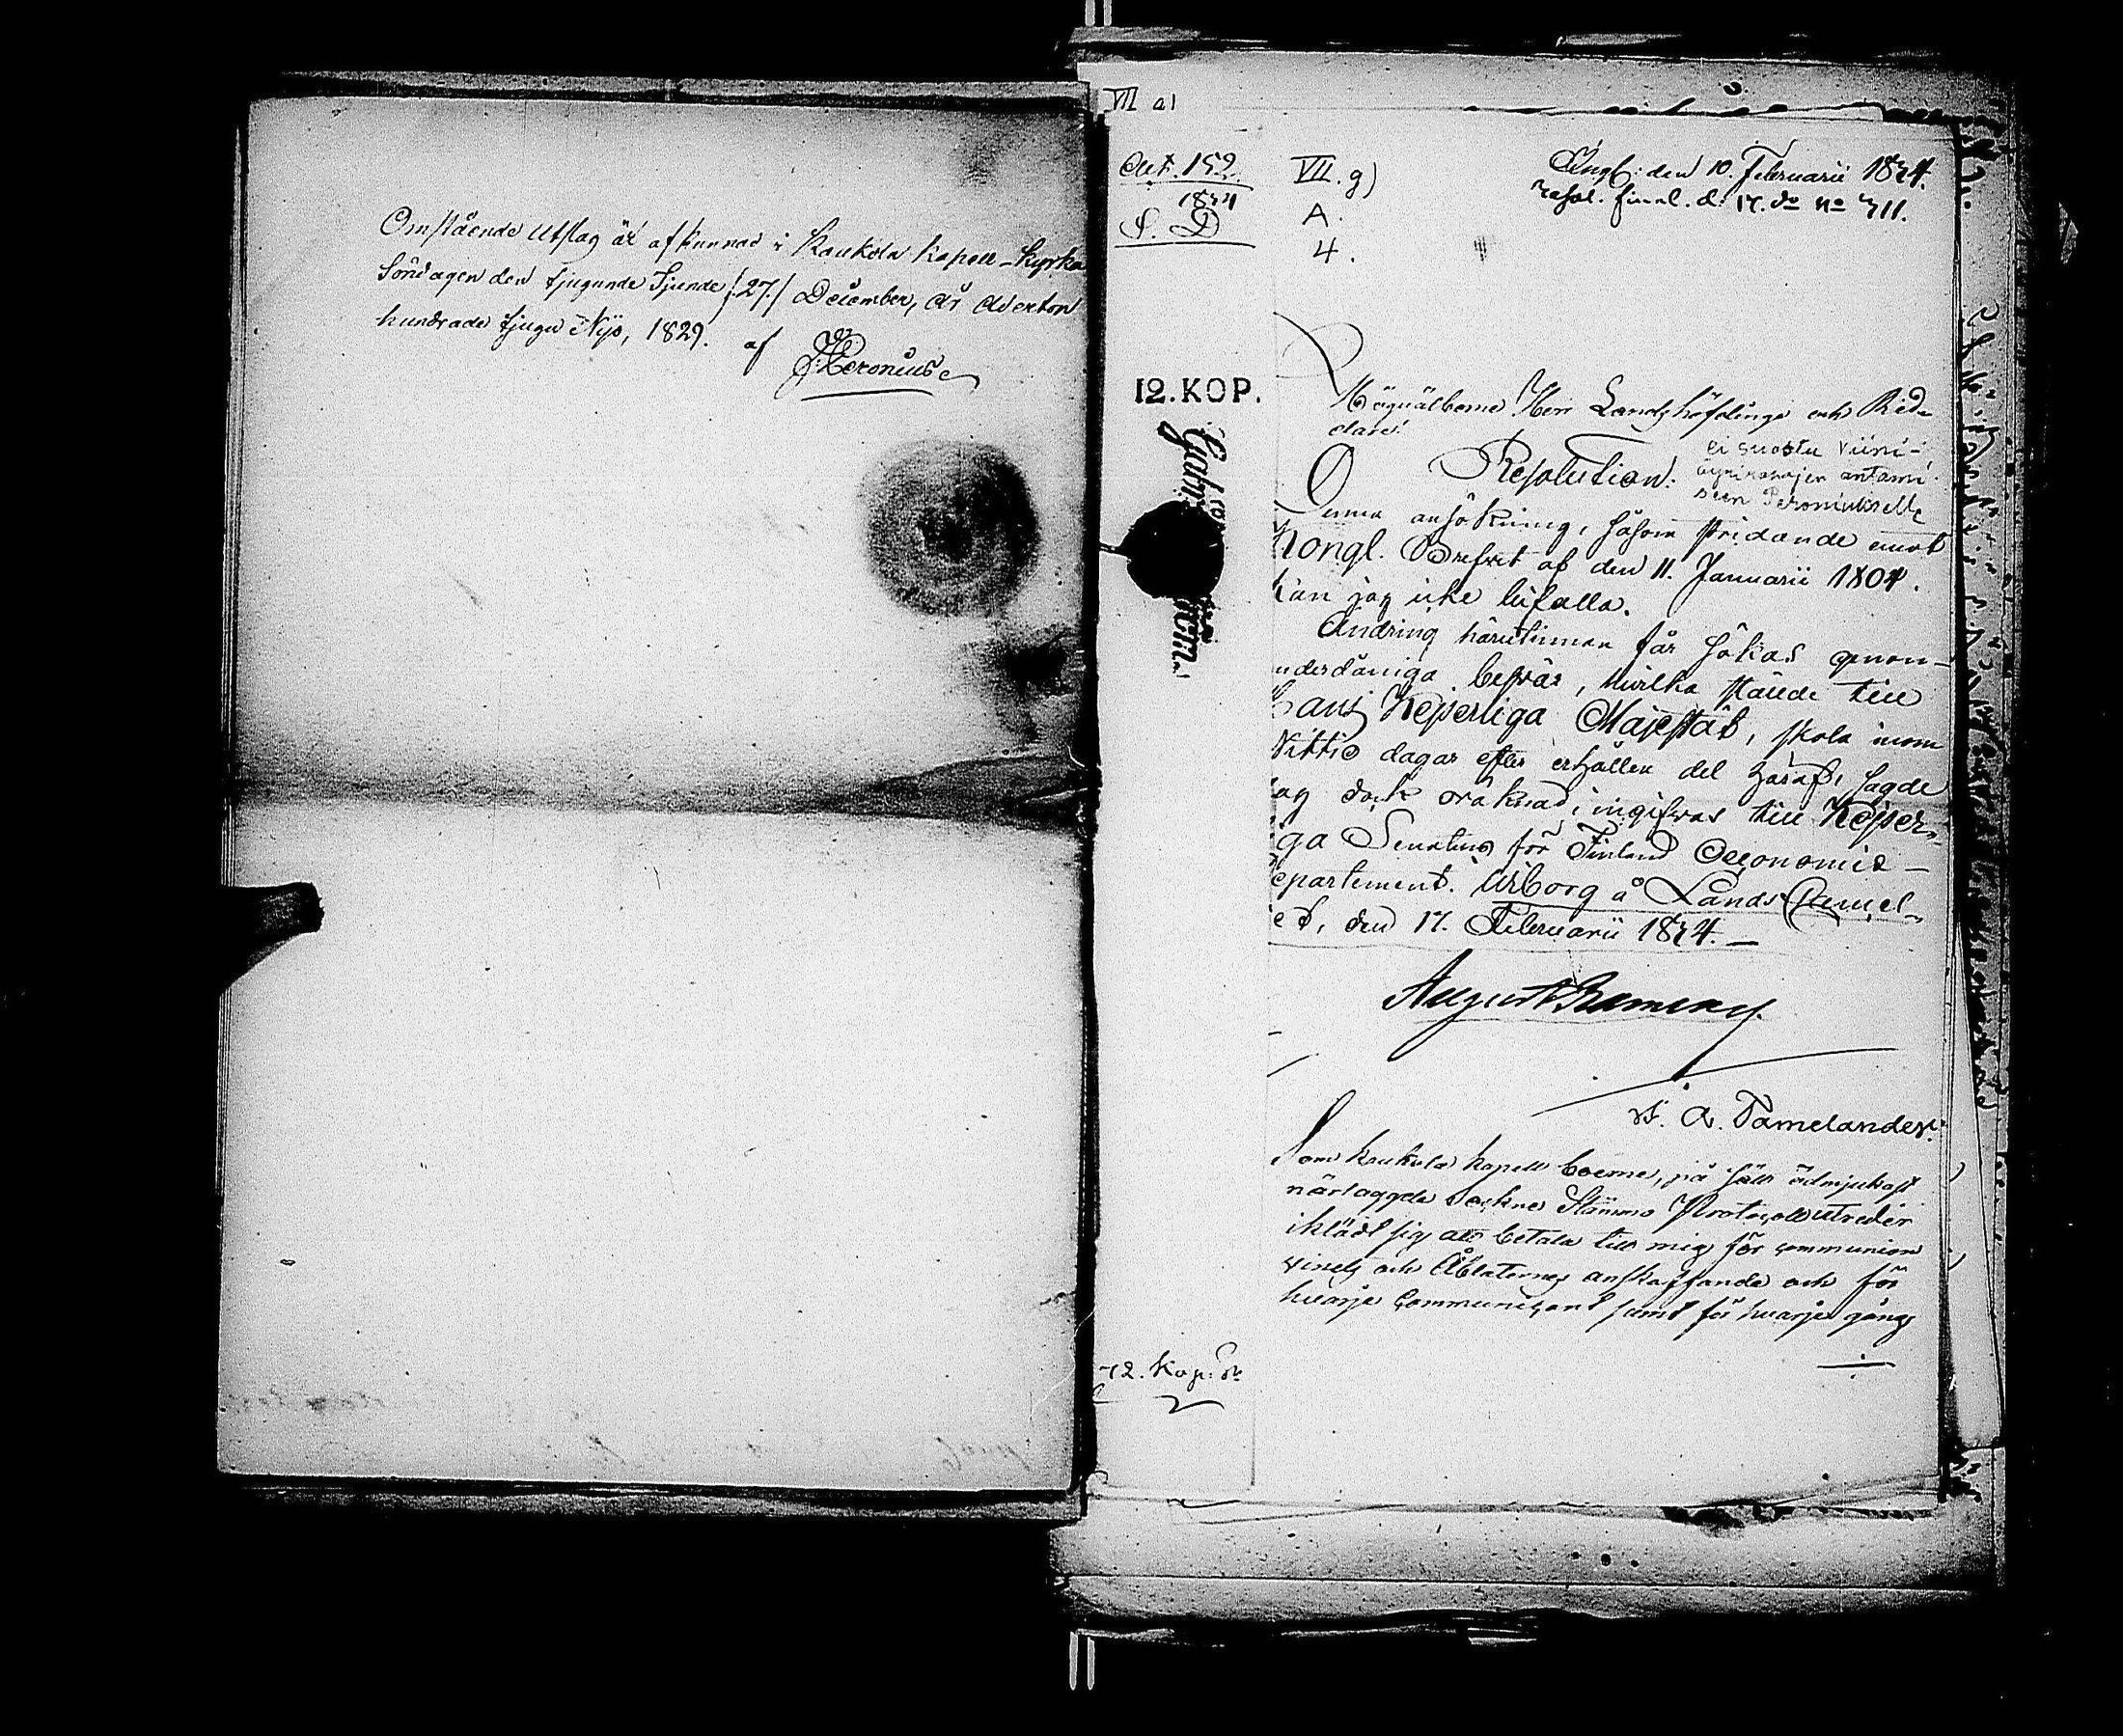 Omstående Utslag är afkunnad i Kaukola kapell-kyrka
Söndagen den tjugunde Sjunde /:27:/ December, år Aderton
hundrade tjugu Nijo, 1829.
af
J. Peronius
VII a1
Act. 152.
1834
S. D
VII. g)
A.
4.
Ingb: den 10. Februarii 1834.
resol. final. d. 17. do No 311.
12. KOP.
Högvälborne Herr Landshöfdinge och Rid-
dare!
Resolution.
ei suostu viini-
antami-
seen Peroniukselle
Denna ansökning, såsom stridande emot
Kongl. Brefvet af den 11. Januarii 1804.
kan jag icke bifalla.
Ändring härutinnan får sökas genom
underdåniga besvär, hvilka stälde till
Hans Kejserliga Majestät, skola inom
Trittio dagar efter erhållen del häraf, sagde
dag dock oräknad, ingifvas till Kejser-
liga Senatens för Finland Oeconomie-
departement. Wiborg å Lands Cancel-
iet, den 17. Februarii 1834.
August Ramsay.
A. Tamelander.
Som Kaukola kapell boerne, på sätt ödmjukast
närlaggde Sockne Stämmo Protocoll utreder
iklädt sig att betala till mig för communion
vinets och Oblaternes anskaffande och för
hvarje Communicant samt för hvarje gång
12. Kop: Sr